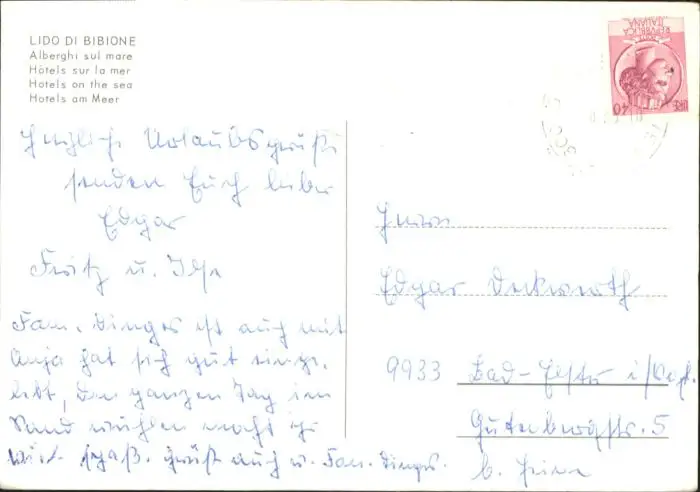 LIDO DI BIBIONE
Alberghi sul mare
Hôtels sur la mer
Hotels on the sea
Hotels am Meer
Herzliche Urlaubsgrüße
senden Euch lieber
Edgar
Fritz u. Ilse
Fam. Dinges ist auch mit
Anja hat sich gut einge-
lebt, den ganzen Tag im
Sand wühlen macht ihr
viel Spaß. grüßt auch u. Fam. Dinges.
REPUBBLICA
ITALIANA
LIRE 40
Herrn
Edgar
9933 Bad-Elster i/Vogt.
Gutenbergstr. 5
b.